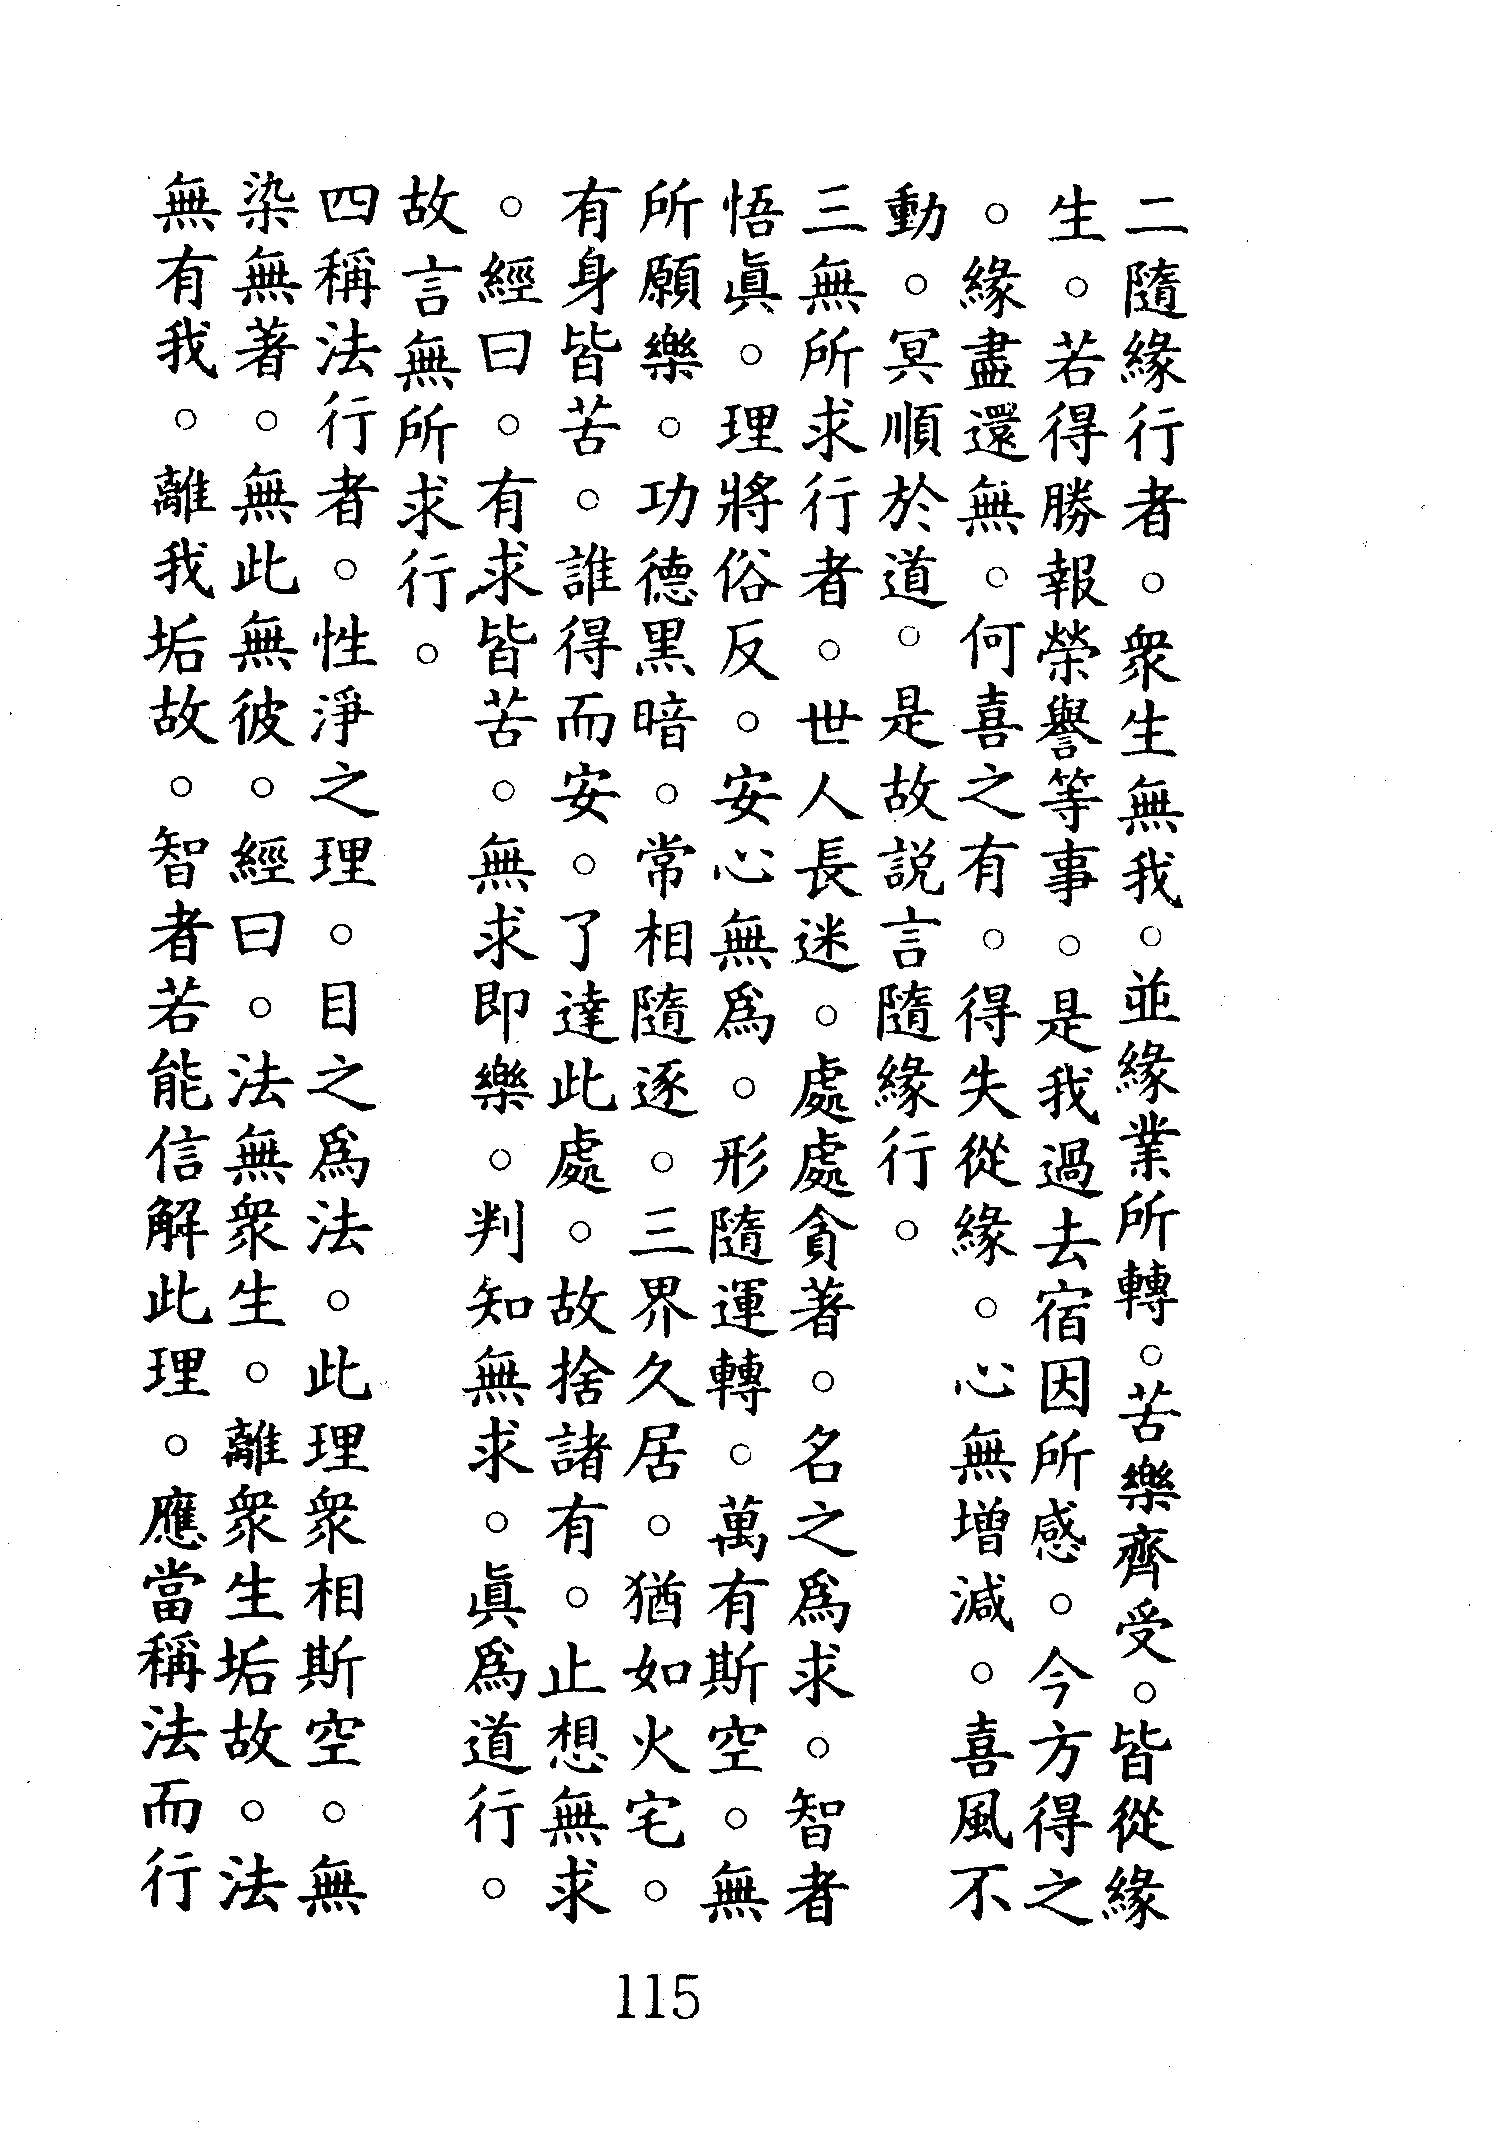 二隨緣行者。衆生無我。並緣業所轉。苦樂齊受。皆從緣
生。若得勝報榮譽等事。是我過去宿因所感。今方得之
。緣盡還無。何喜之有。得失從緣。心無增減。喜風不
動。冥順於道。是故説言隨緣行。
三無所求行者。世人長迷。處處貪著。名之爲求。智者
悟眞。理將俗反。安心無爲。形隨運轉。萬有斯空。無
所願樂。功德黑暗。常相隨逐。三界久居。猶如火宅。
有身皆苦。誰得而安。了達此處。故捨諸有。止想無求
。經曰。有求皆苦。無求即樂。判知無求。眞爲道行。
故言無所求行。
四稱法行者。性淨之理。目之爲法。此理衆相斯空。無
染無著。無此無彼。經曰。法無衆生。離衆生垢故。法
無有我。離我垢故。智者若能信解此理。應當稱法而行
115